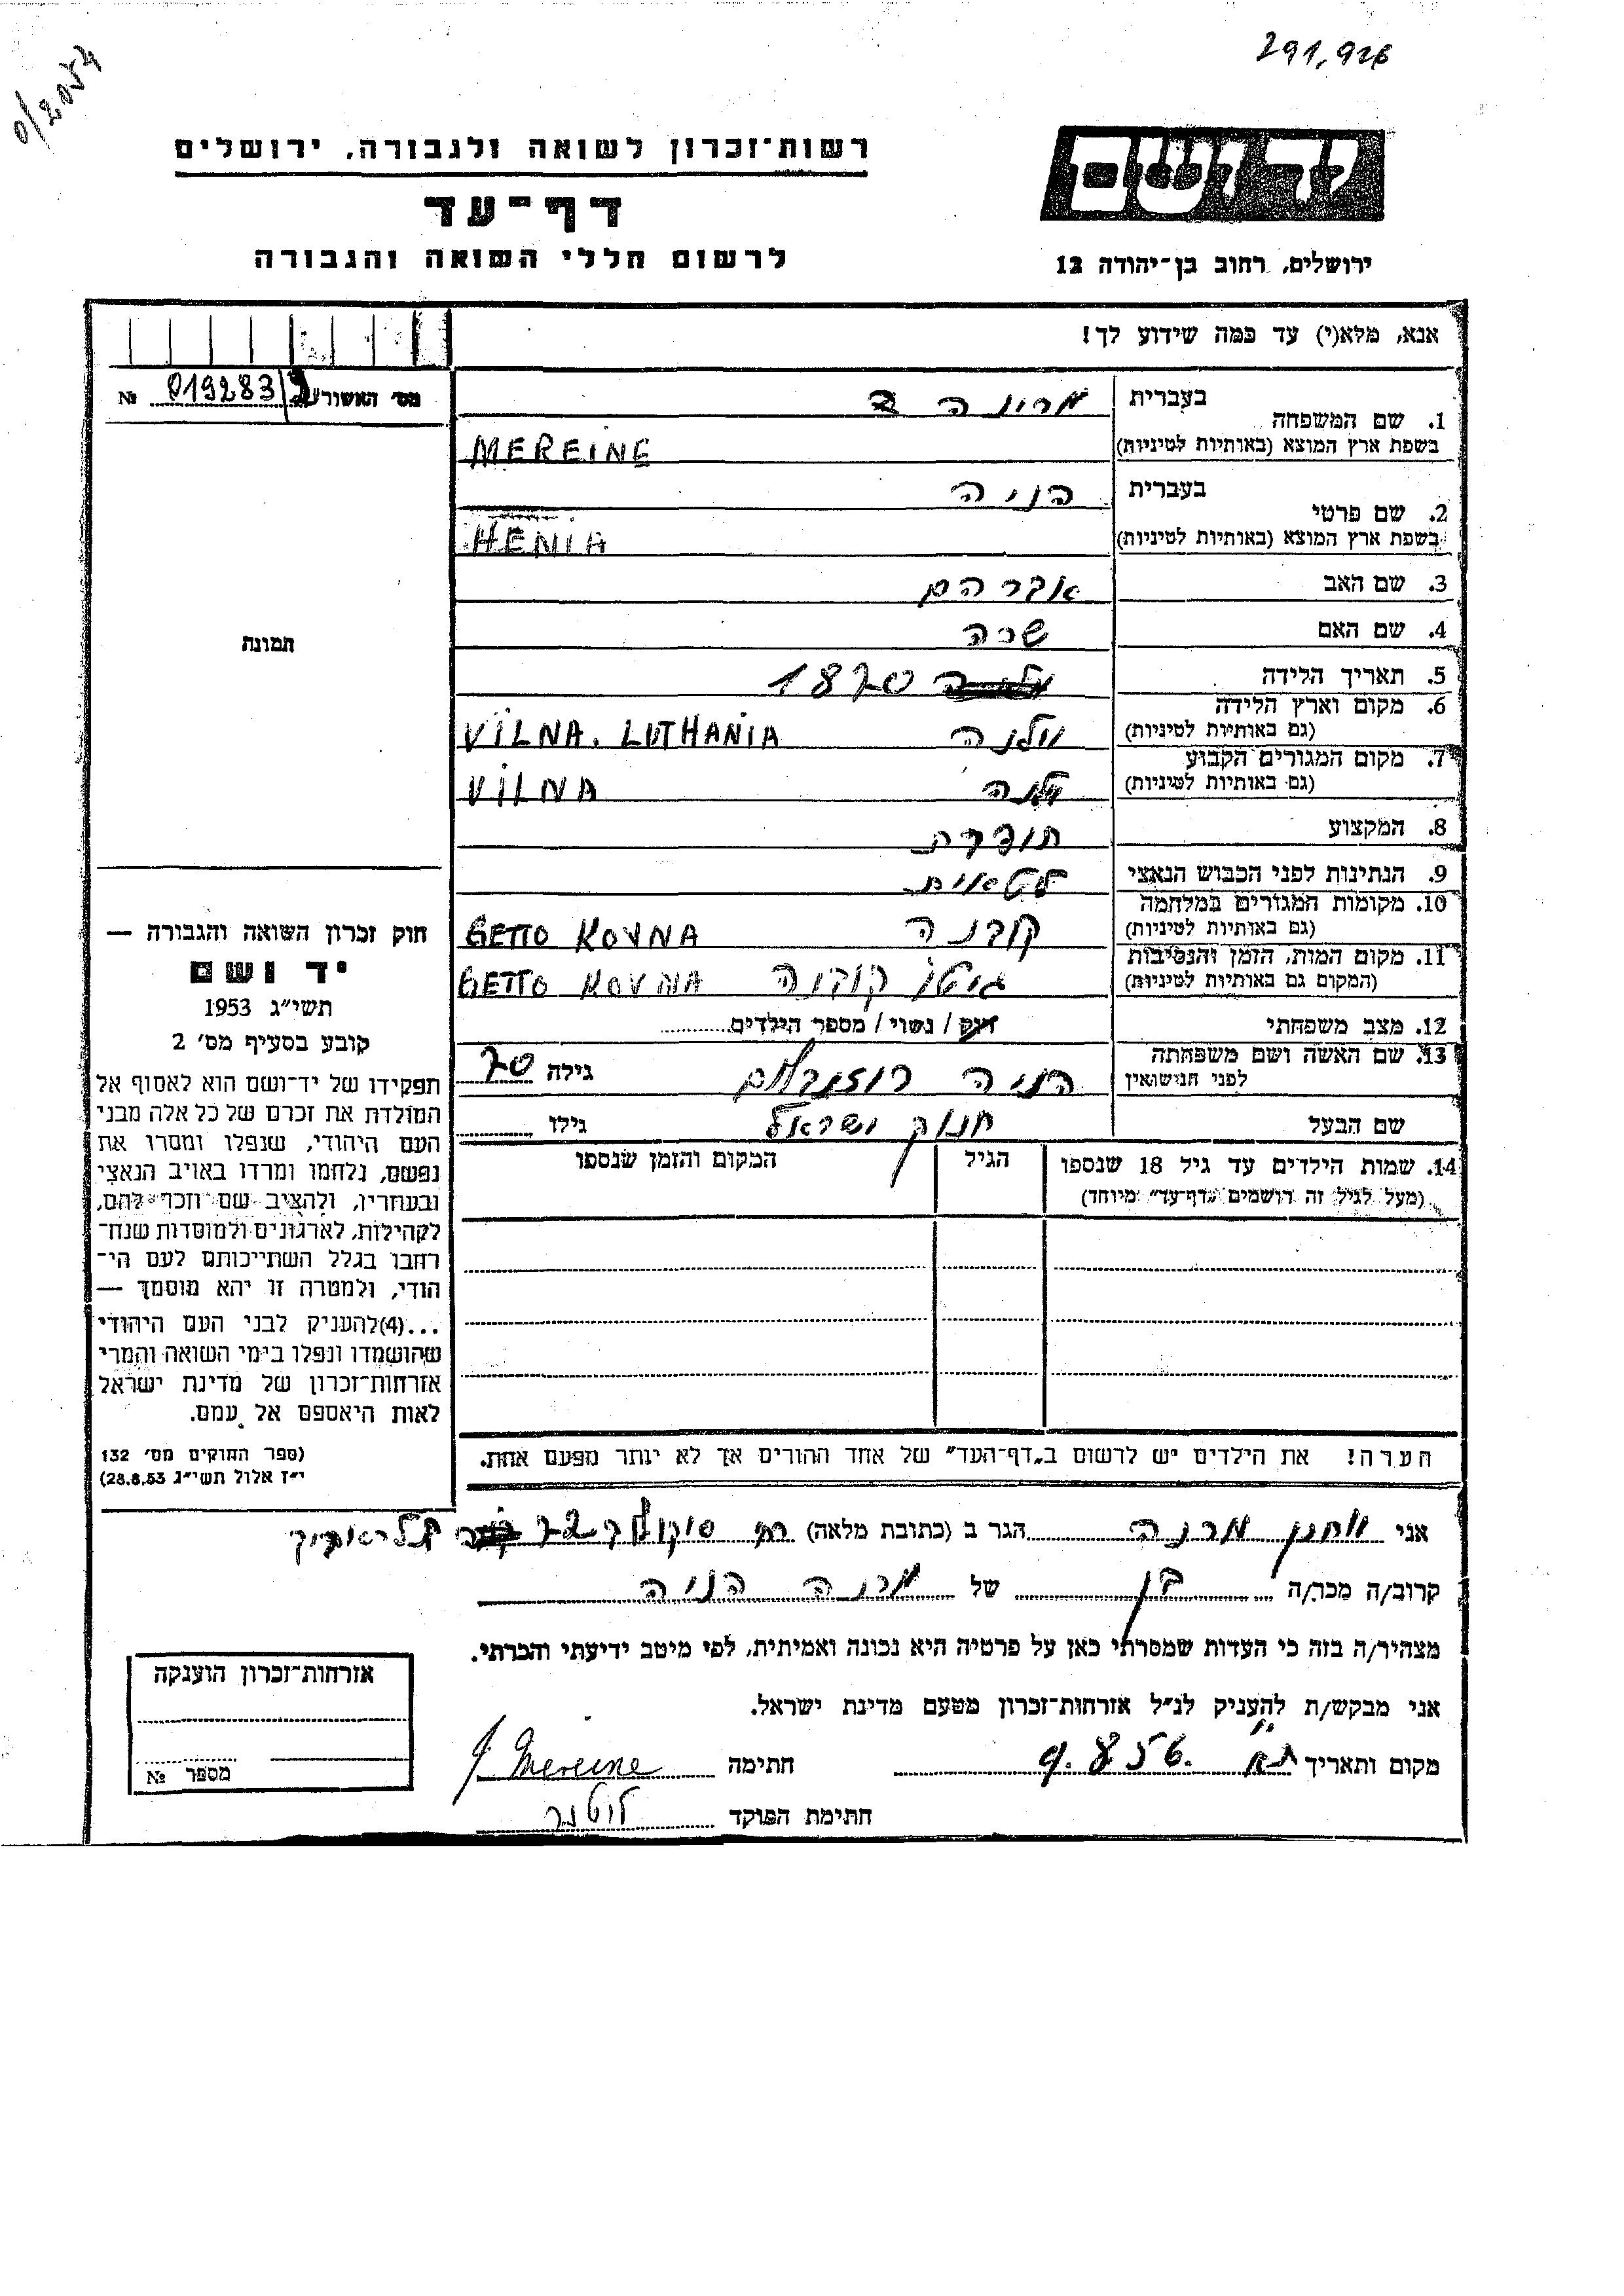 291,926
0/2054
רשות־זכרון לשואה ולגבורה, ירושלים
דף־עד
לרשום חללי השואה והגבורה
יד ושם
ירושלים, רחוב בן־יהודה 12
אנא, מלא(י) עד כמה שידוע לך!
מס' האשור № 019283
1. שם המשפחה
בעברית
בשפת ארץ המוצא (באותיות לטיניות) MEREINE
2. שם פרטי
בעברית הניה
בשפת ארץ המוצא (באותיות לטיניות) HENIA
3. שם האב אברהם
4. שם האם שרה
5. תאריך הלידה 1870
6. מקום וארץ הלידה
(גם באותיות לטיניות) וילנה VILNA. LUTHANIA
7. מקום המגורים הקבוע
(גם באותיות לטיניות) וילנה VILNA
8. המקצוע
9. הנתינות לפני הכבוש הנאצי ליטאית
10. מקומות המגורים במלחמה
(גם באותיות לטיניות) קובנה GETTO KOVNA
11. מקום המות, הזמן והנסיבות
(המקום גם באותיות לטיניות) גיטו קובנה GETTO KOVNA
12. מצב משפחתי רווק / נשוי / מספר הילדים
13. שם האשה ושם משפחתה
לפני הנישואין הניה רוזנבלום גילה 70
שם הבעל ישראל גילו
14. שמות הילדים עד גיל 18 שנספו הגיל המקום והזמן שנספו
(מעל לגיל זה רושמים „דף־עד״ מיוחד)
הערה! את הילדים יש לרשום ב„דף־העד״ של אחד ההורים אך לא יותר מפעם אחת.
תמונה
חוק זכרון השואה והגבורה —
יד ושם
תשי״ג 1953
קובע בסעיף מס' 2
תפקידו של יד־ושם הוא לאסוף אל
המולדת את זכרם של כל אלה מבני
העם היהודי, שנפלו ומסרו את
נפשם, נלחמו ומרדו באויב הנאצי
ובעוזריו, ולהציב שם וזכר להם,
לקהילות, לארגונים ולמוסדות שנח־
רבו בגלל השתייכותם לעם הי־
הודי, ולמטרה זו יהא מוסמך —
...(4)להעניק לבני העם היהודי
שהושמדו ונפלו בימי השואה והמרי
אזרחות־זכרון של מדינת ישראל
לאות היאספם אל עמם.
(ספר החוקים מס' 132
י״ז אלול תשי״ג 28.8.53)
אני מרנה הגר ב (כתובת מלאה) רח סוקולוב 22 תל־אביב
קרוב/ה מכר/ה בן של מרנה הניה
מצהיר/ה בזה כי העדות שמסרתי כאן על פרטיה היא נכונה ואמיתית, לפי מיטב ידיעתי והכרתי.
אני מבקש/ת להעניק לנ״ל אזרחות־זכרון מטעם מדינת ישראל.
מקום ותאריך ת״א 9.8.56 חתימה J. Mereine
חתימת הפוקד
אזרחות־זכרון הוענקה
מספר №